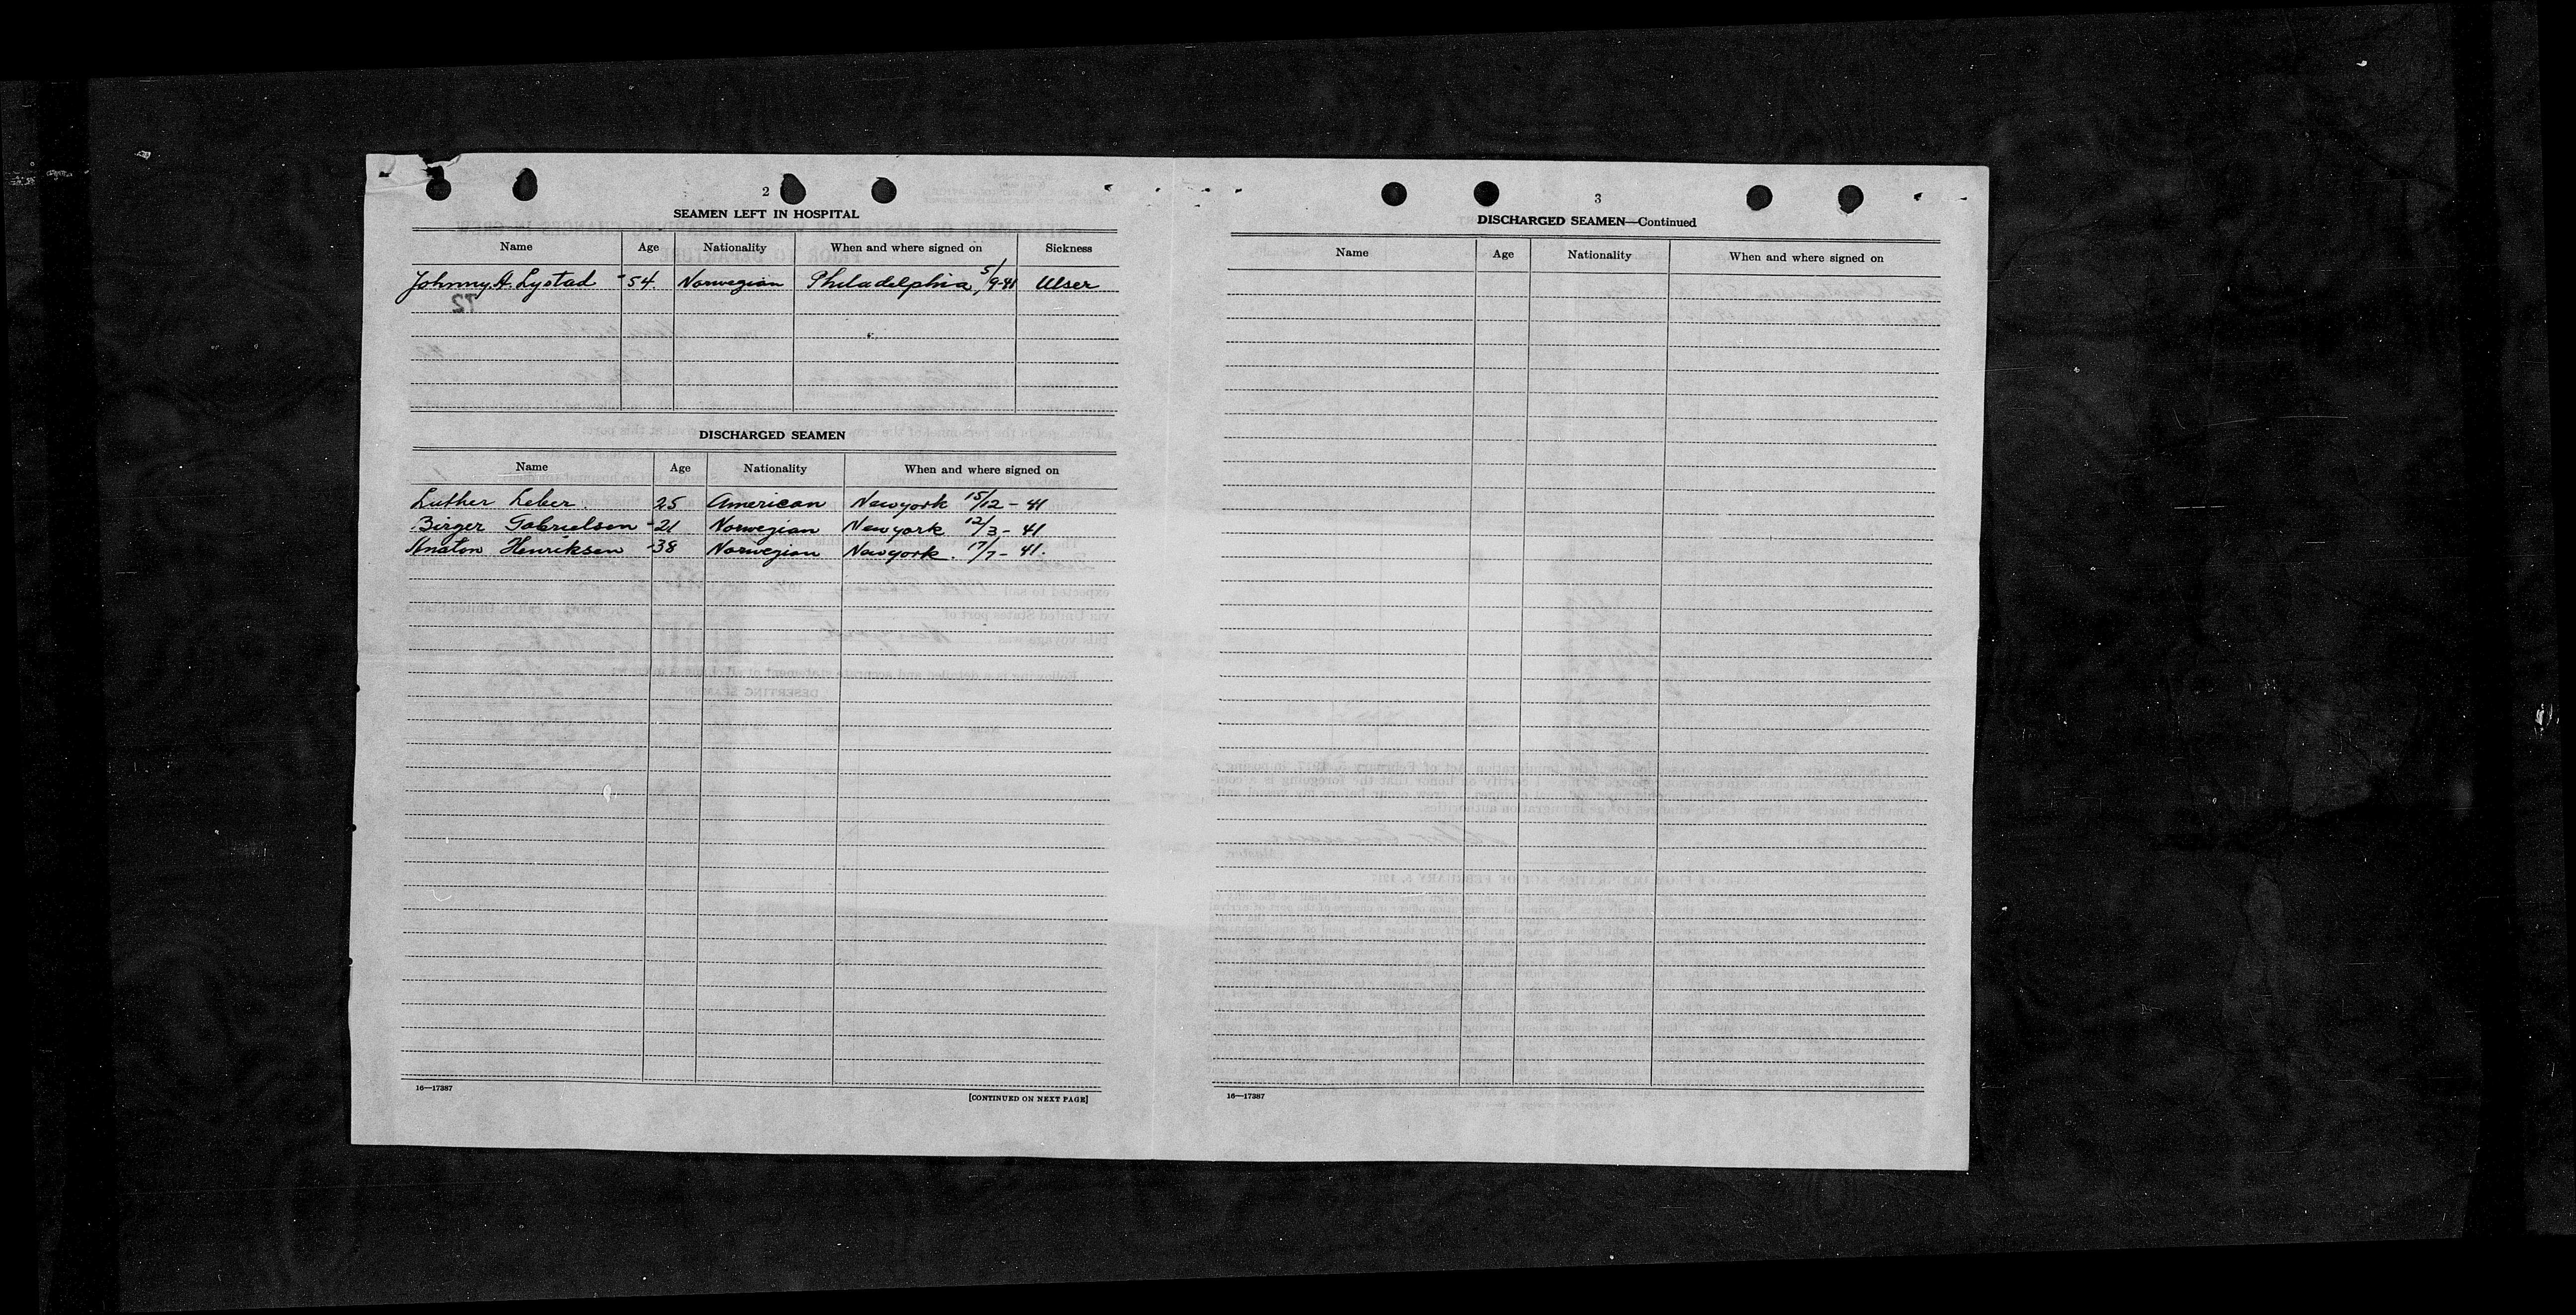 2
SEAMEN LEFT IN HOSPITAL
Name Age Nationality When and where signed on Sickness
Johnny A. Lystad - 54. Norwegian Philadelphia, 5/9-41 Ulser
DISCHARGED SEAMEN
Name Age Nationality When and where signed on
Luther Leber. 25 American Newyork 15/12 - 41
Birger Gabrielsen - 21 Norwegian Newyork 12/3 - 41
Anaton Henriksen - 38 Norwegian Newyork. 17/7 - 41.
16—17387
[CONTINUED ON NEXT PAGE]
3
DISCHARGED SEAMEN—Continued
Name Age Nationality When and where signed on
16—17387